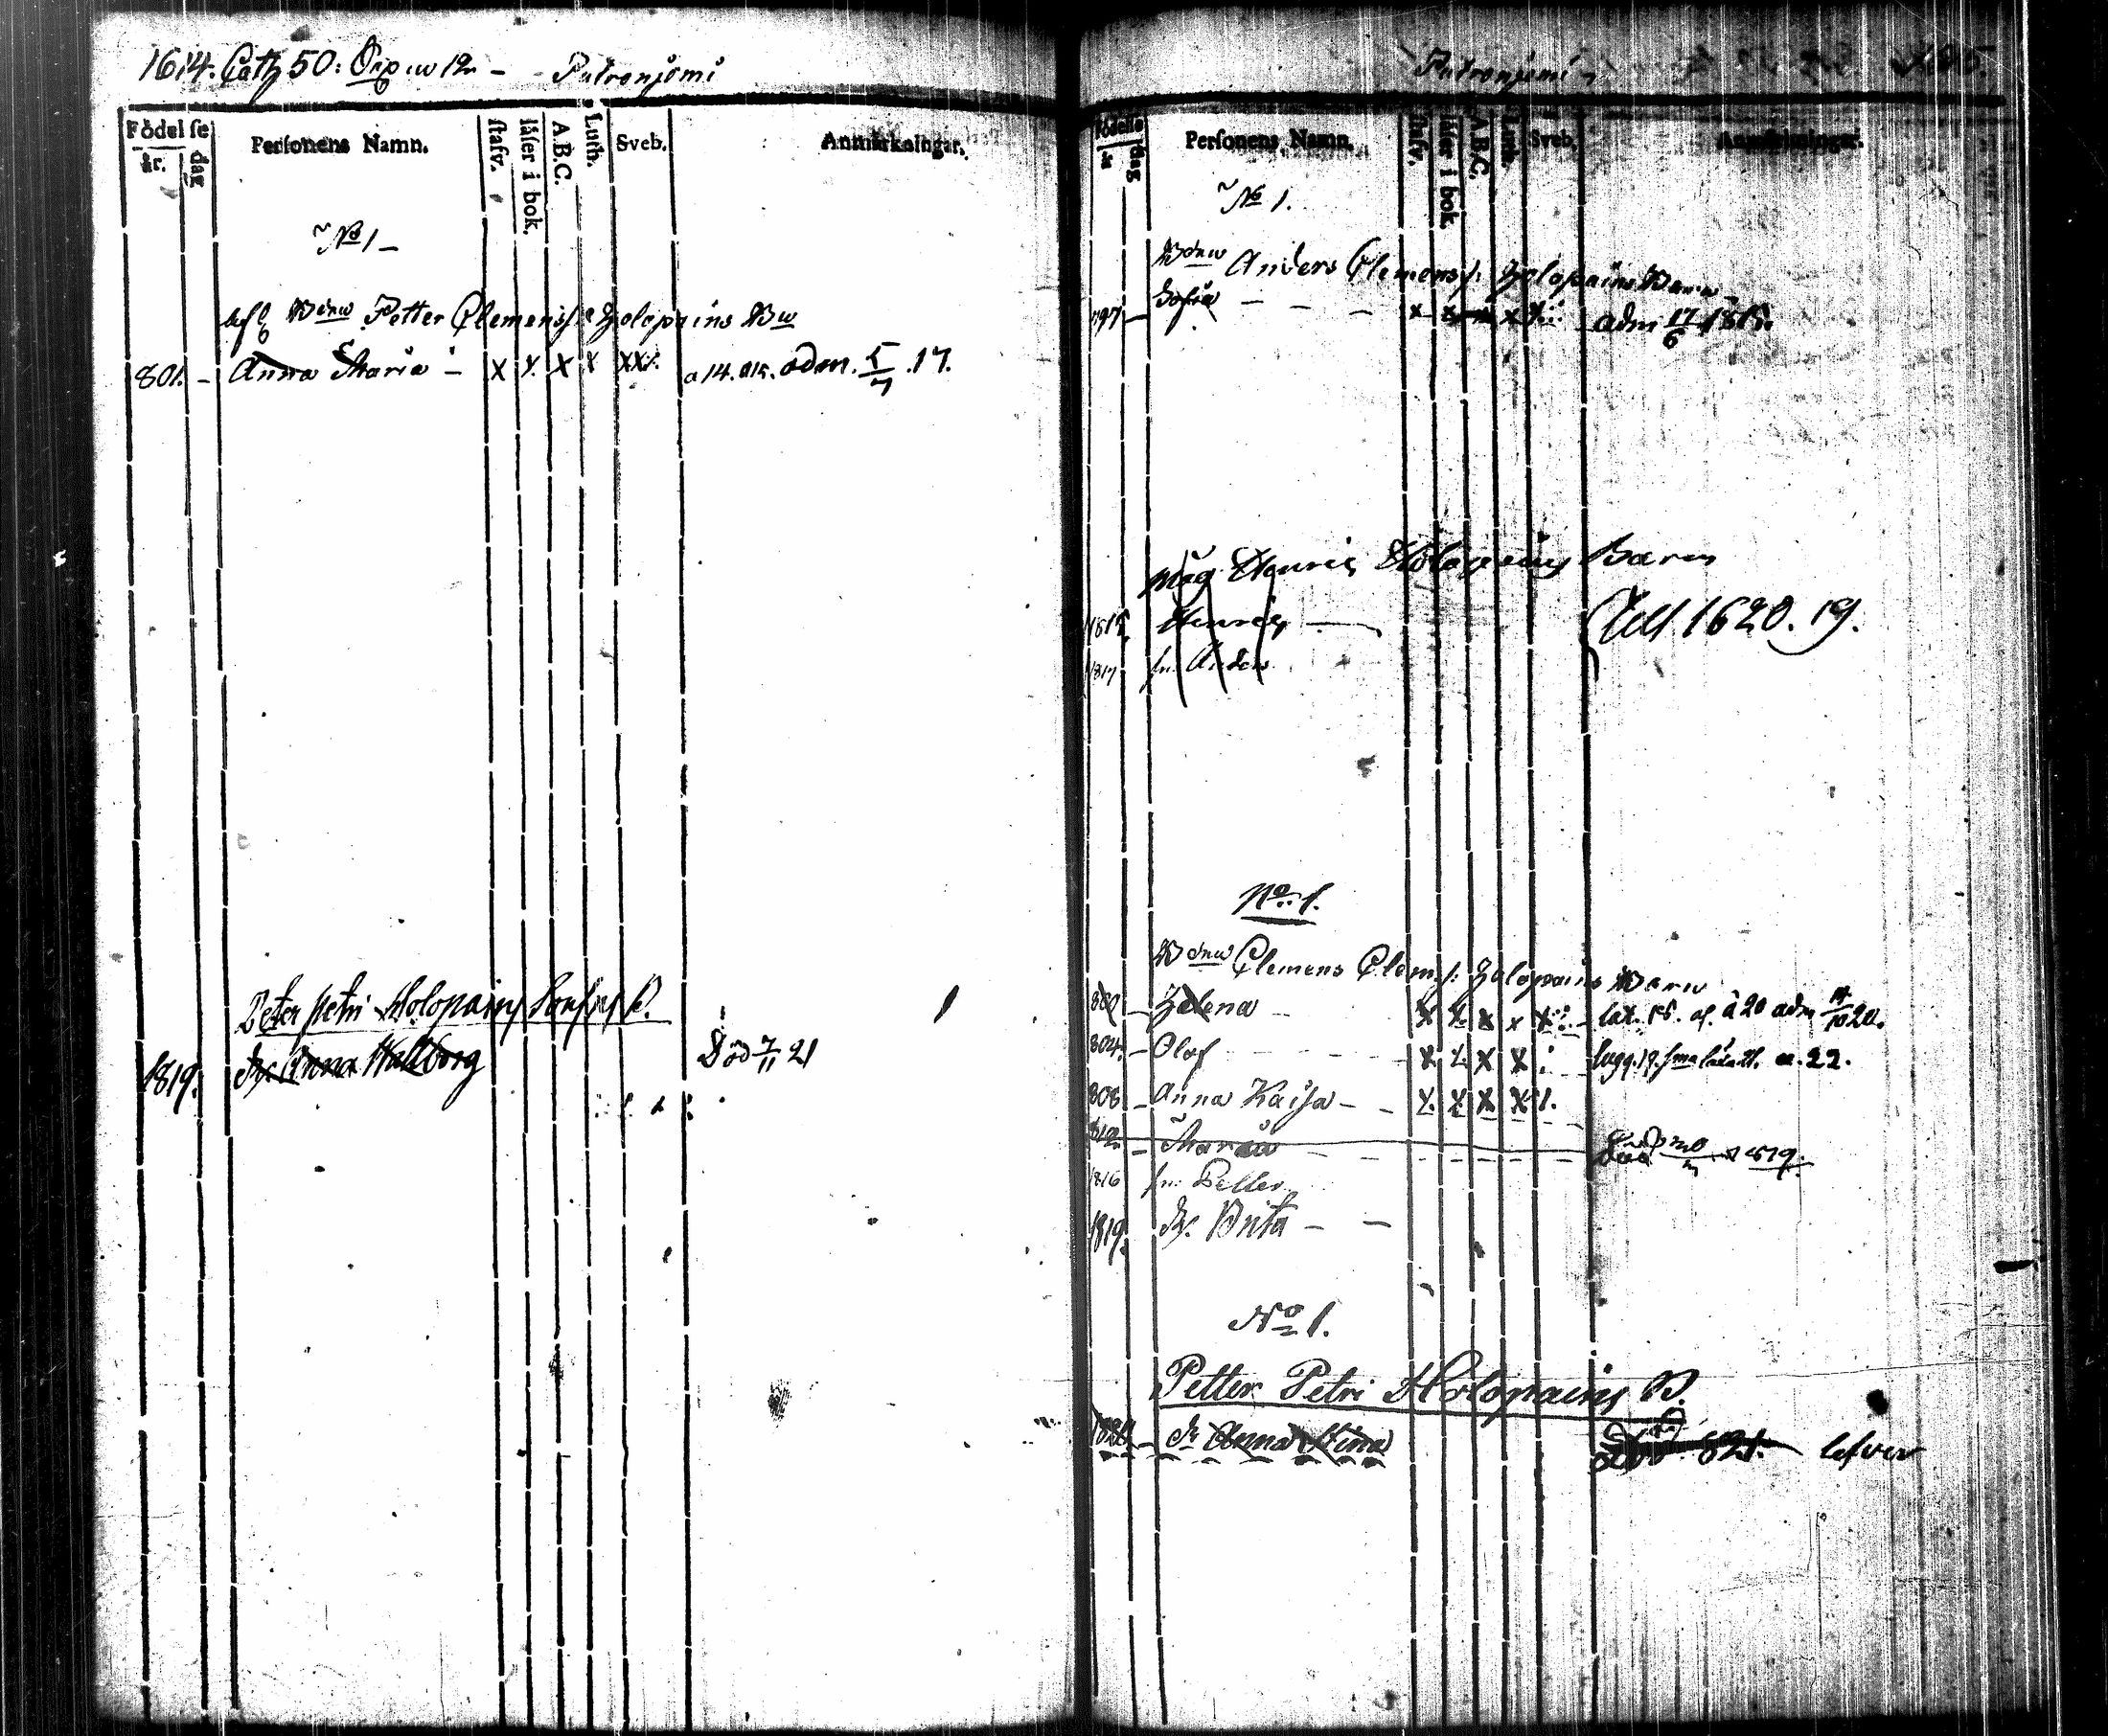 1614. Cath 50: Sid. 12 – Putronjemi
Födelse
år. dag
Personens Namn.
stafv.
läser i bok.
A.B.C.
Luth.
Sveb.
Anmärkningar.
No 1 –
Petter Clemenss: Holopains
801. – Anna Maria – x x x x xx a 14. adm. 5/7 .17.
Peter Petri Holopains B.
1819. Anna Wallborg Död 7/11 21
Putronjemi
Födelse
år dag
Personens Namn.
stafv.
läser i bok.
A.B.C.
Luth.
Sveb.
Anmärkningar.
No 1.
Anders Clemenss: Holopains Barn
797 – Sofia – – – x x x x adm 17/6 1815.
måg Henric Holopains Barn
Henric –
1817. Anders
1620. 19.
No. 1.
Clemens Clem.s: Holopains Barn
802 – Helena – x x x x a 20 adm 20.
804. – Olof x x x x a. 22.
808 – Anna Kaisa – – x x x x
812 – Maria Död 1819.
1816 sn: Petter
1819. Brita – –
No 1.
Petter Petri Holopains B.
Anna Stina Död 821. lefver